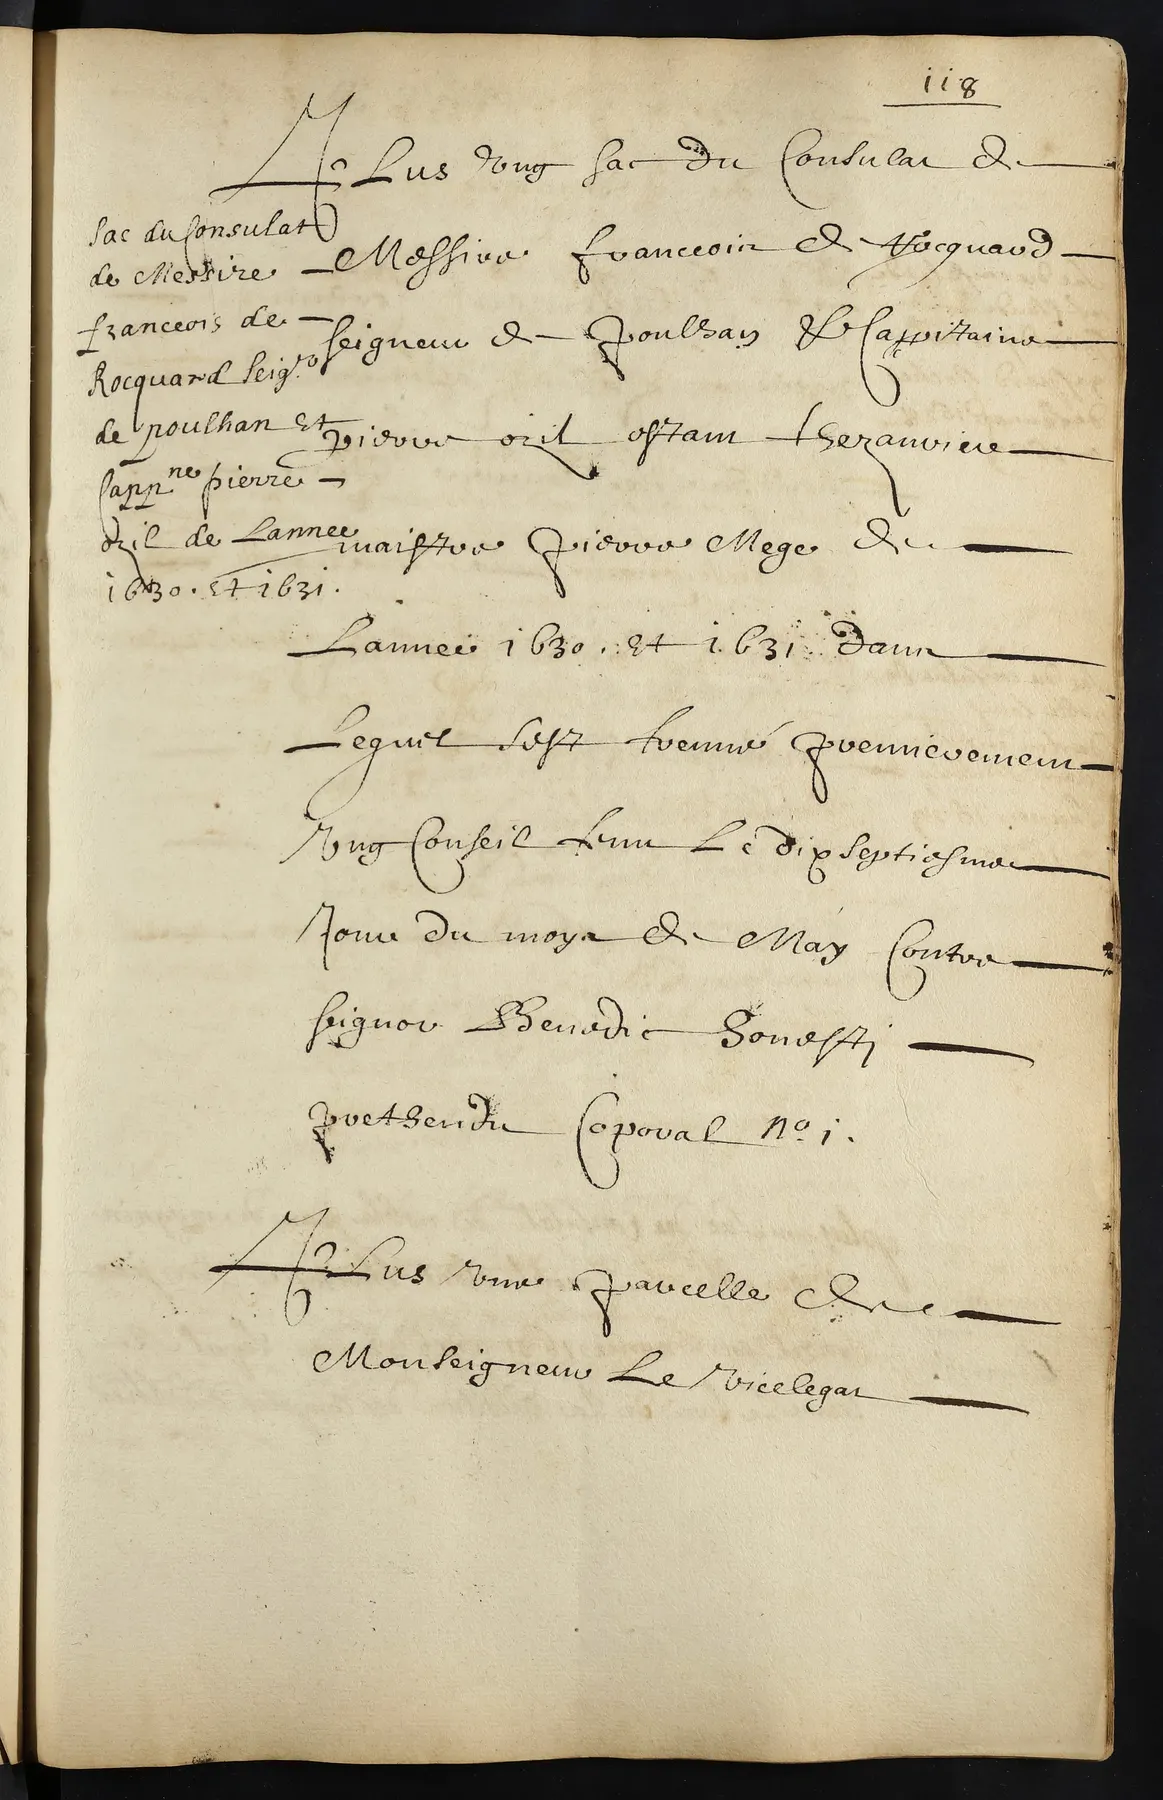 118
Plus vng sac du Consulat de
Messire franceois de Rocquard
seigneur de poulhan Et Cappitaine
pierre ozil estant thezaurier
maistre pierre Mege de
Lannee 1630. Et 1631. dans
Lequel sest treuué premierement
Vng Conseil tenu Le dixseptiesme
Jour du moys de May Contre
seignor Benedic honesti
prethendu Coporal No. 1.
Plus vne parcelle de
Monseigneur Le vicelegat
Sac du Consulat
de Messire
franceois de
Rocquard Seigr
de poulhan Et
Cappne pierre
ozil de Lannee
1630. Et 1631.